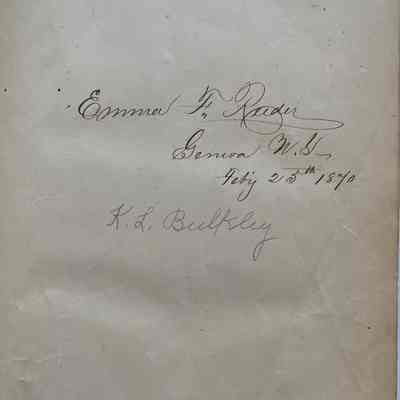 Emma F. Reeder
Geneva N.Y.
Feby 25th 1870
K. L. Bulkley